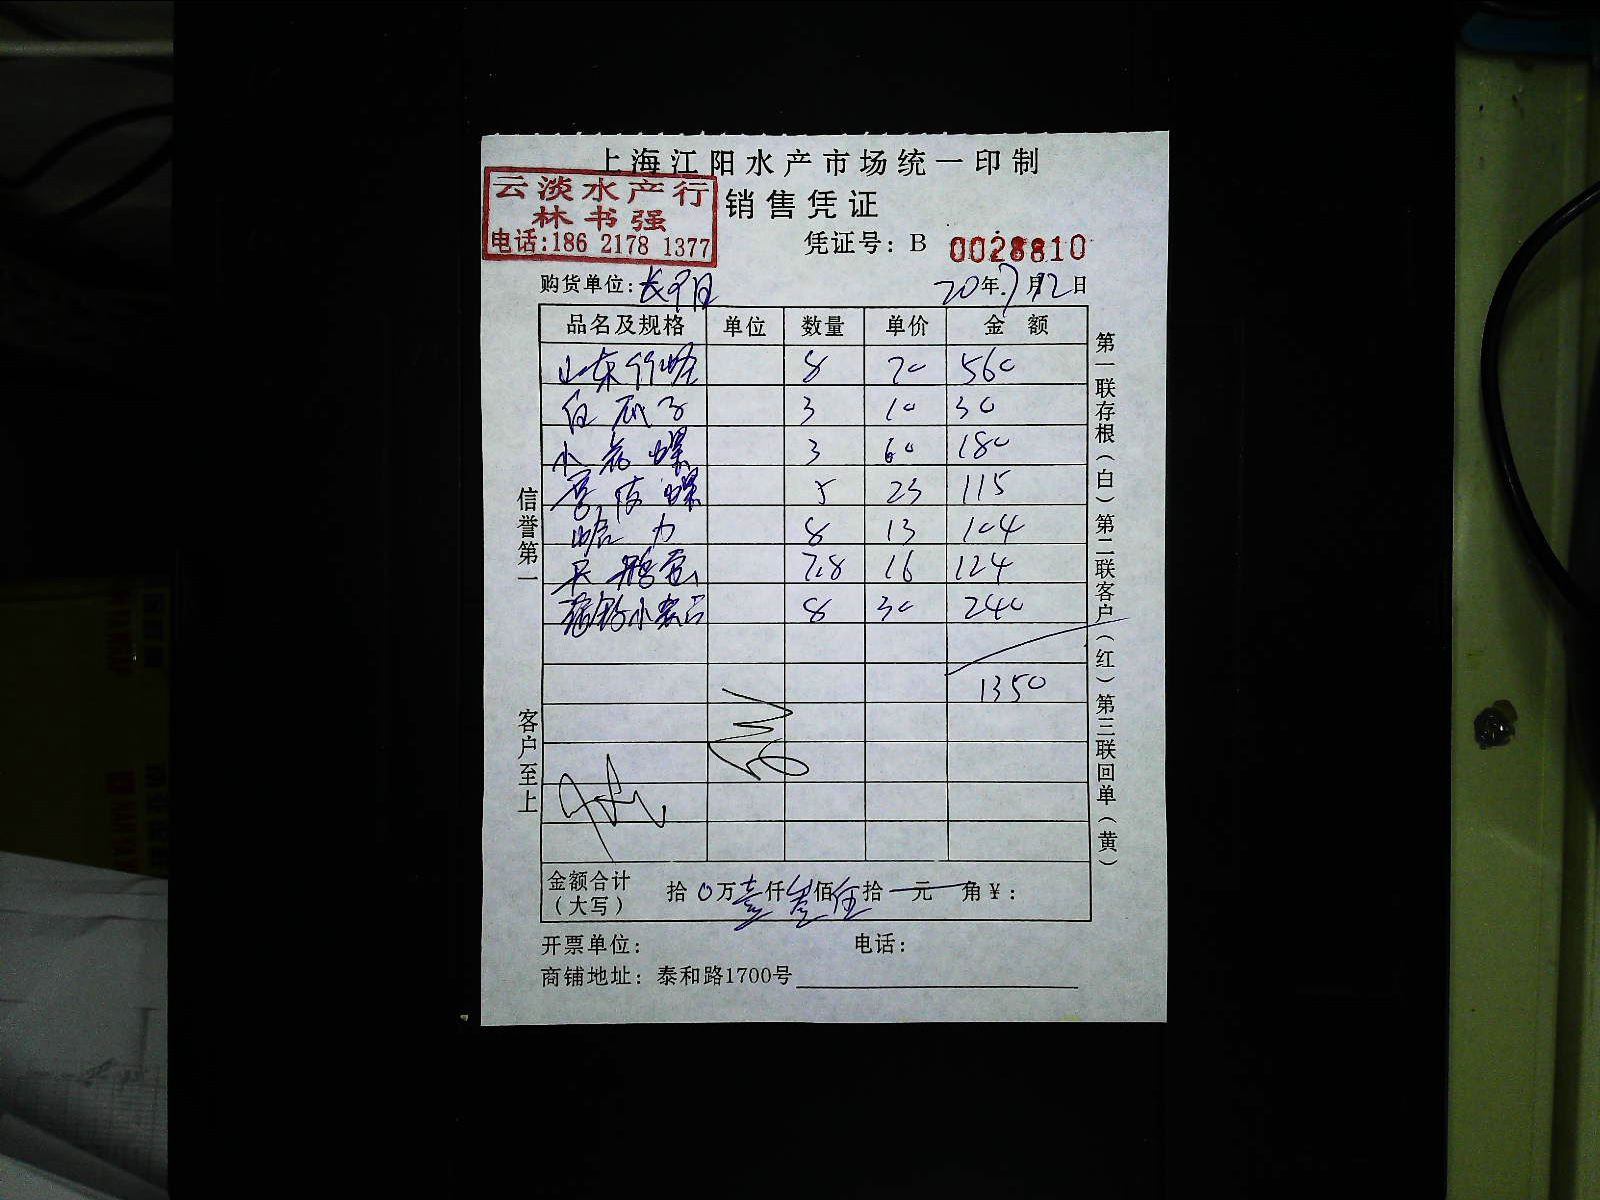 上海江阳水产市场统一印制
云淡水产行
林书强
电话:186 2178 1377
销售凭证
凭证号: B 0028810
购货单位: 长阳
20年7月12日
品名及规格 单位 数量 单价 金额
山东竹蛏 8 70 560
白瓜子 3 10 30
小花螺 3 60 180
香波螺 5 23 115
蛤力 8 13 104
天鹅蛋 7.8 16 124
小 8 30 240
1350
金额合计（大写） 拾0万壹仟叁佰伍拾一元 角¥:
开票单位: 电话:
商铺地址: 泰和路1700号
信誉第一
客户至上
第一联存根(白)第二联客户(红)第三联回单(黄)